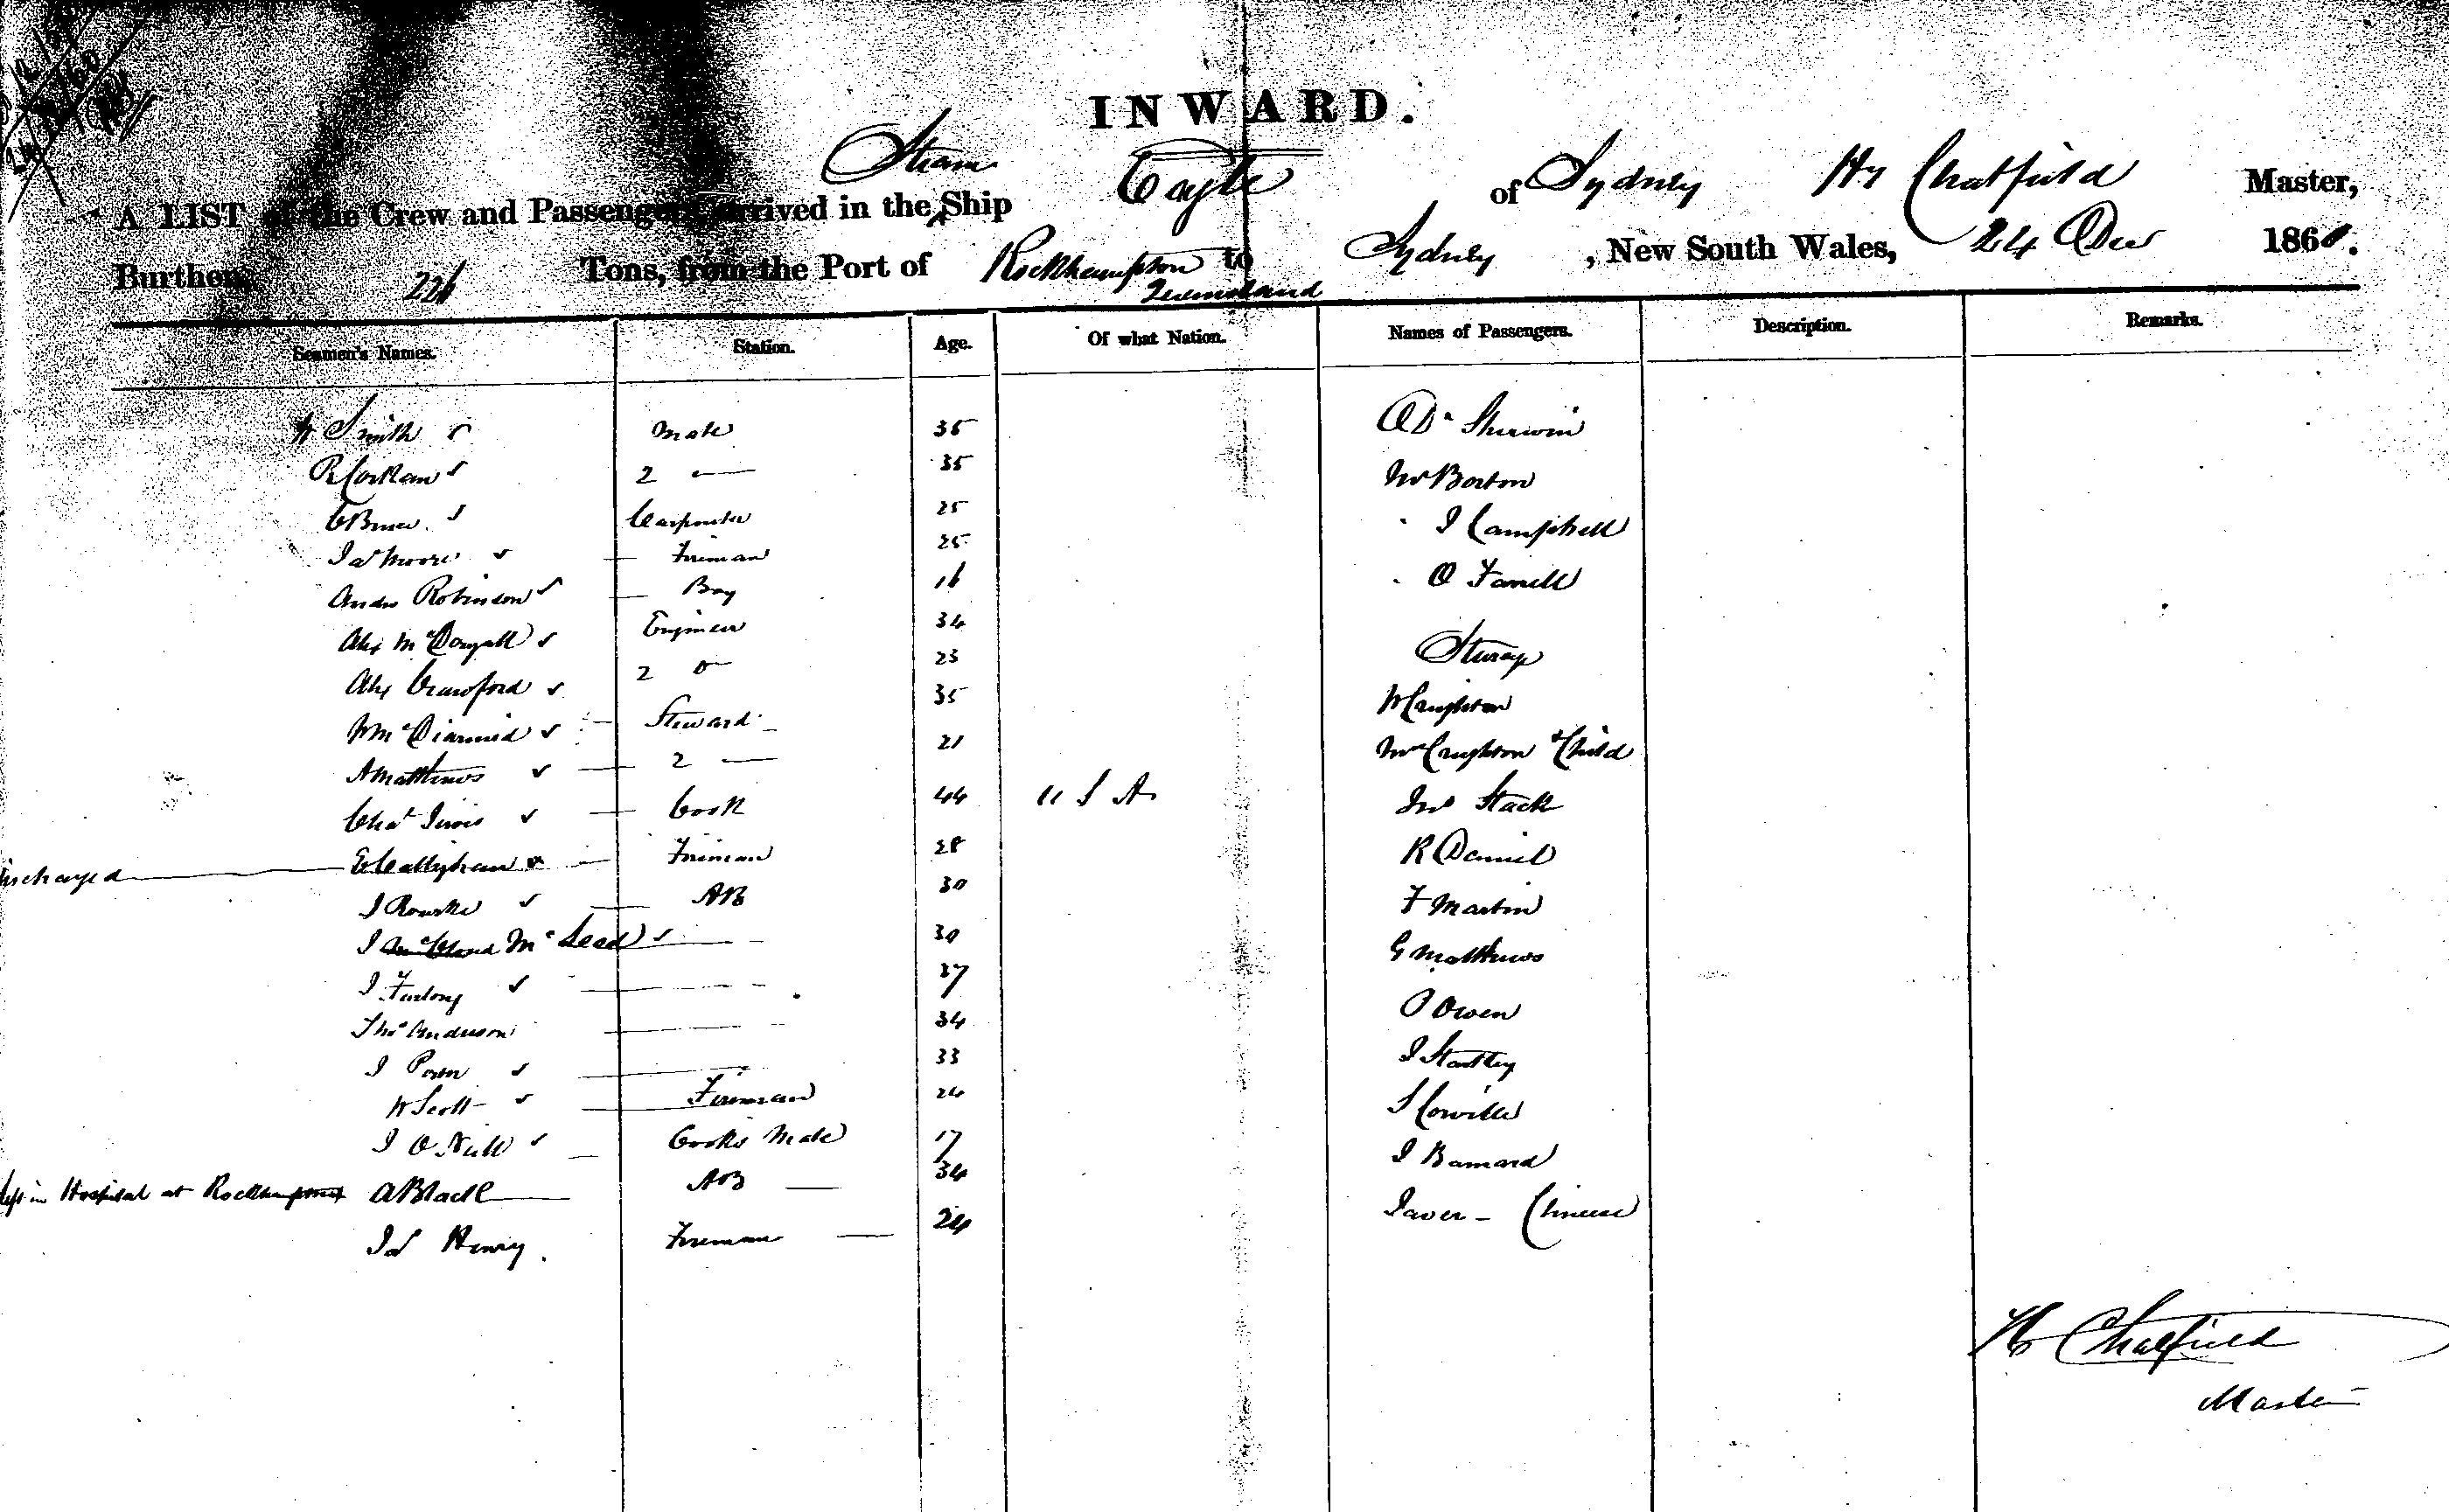 INWARD.
A LIST of the Crew and Passengers arrived in the Steam Ship Eagle of Sydney Hy Chatfield Master,
Burthen, 226 Tons, from the Port of Rockhampton to Sydney, New South Wales, 24 Dec 1860.
Queensland
Seamen's Names. Station. Age. Of what Nation. Names of Passengers. Description. Remarks.
W Smith Mate 35 Sherwin
35 Mr Borton
Carpenter 25 J Campbell
Jas Moore Fireman 25 O Farrell
Andw Robinson Boy 16
Alex McDougall Engineer 34 Steerage
Alex Crawford 2 Do 23 W Creighton
W McDiarmid Steward 35 Mrs Creighton & Child
A Matthews 2 21
Chas Cook 44 U S A Jno Stack
Discharged Fireman 28 R Daniel
J Rourke AB 30 F Martin
J McLeod 30 G Matthews
J Furlong 37 P Owen
Thos Anderson 34
J 33 J
W Scott Fireman 24
J O Neill Cooks Mate 17 J Barnard
left in Hospital at Rockhampton A Black AB 34
Chinese
Js Henry Fireman 24
H Chatfield
Master